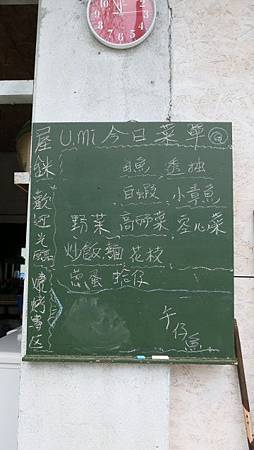 U.mi 今日菜單
魚 透抽
白蝦 小章魚
野菜 高麗菜 空心菜
炒飯.麵 花枝
蛋 擔仔
午仔魚
歡迎光臨 燒烤專区